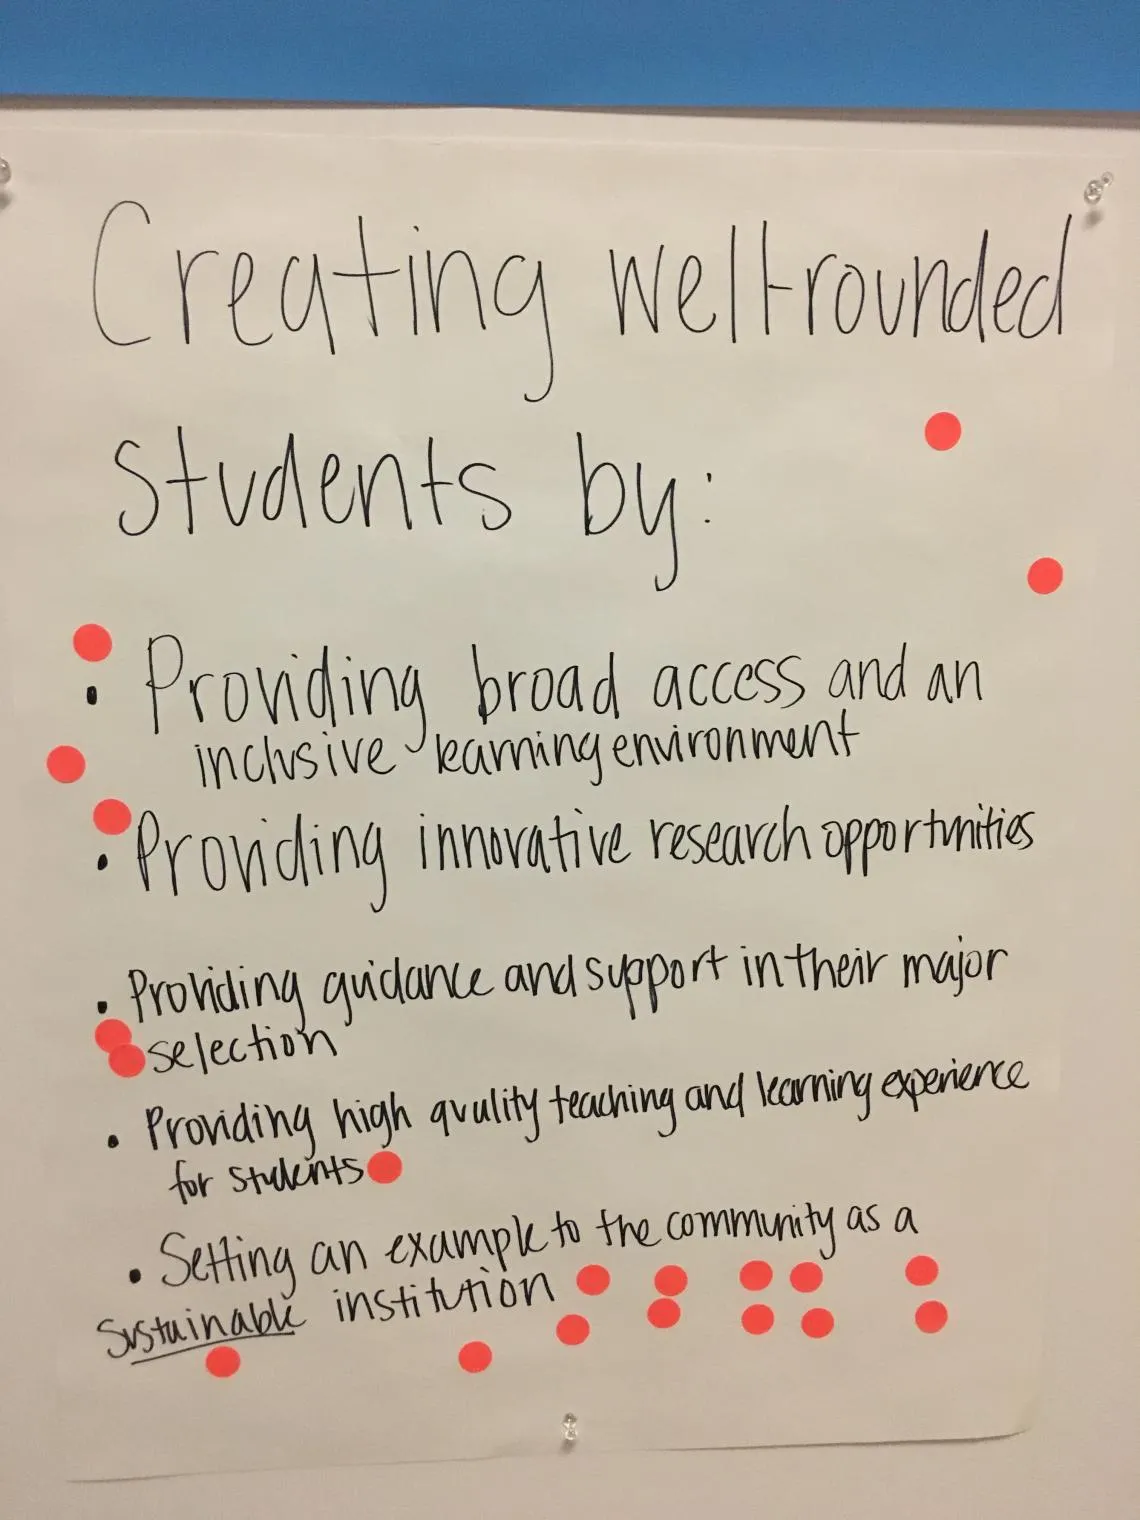 Creating well-rounded
students by:
• Providing broad access and an
inclusive learning environment
• Providing innovative research opportunities
• Providing guidance and support in their major
selection
• Providing high quality teaching and learning experience
for students
• Setting an example to the community as a
sustainable institution